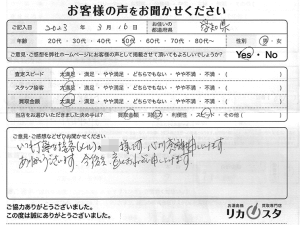 お客様の声をお聞かせください
ご記入日 2023年 3月16日 お住いの都道府県 愛知県
年齢 20代・30代・40代・50代・60代・70代・80代〜 性別 男・女
ご意見・ご感想を弊社ホームページにお客様の声として掲載させて頂いてもよろしいでしょうか? Yes・No
査定スピード 大満足・満足・やや満足・どちらでもない・やや不満・不満・( )
スタッフ接客 大満足・満足・やや満足・どちらでもない・やや不満・不満・( )
買取金額 大満足・満足・やや満足・どちらでもない・やや不満・不満・( )
当店をお選びいただきました決め手は? 買取金額・対応・利便性・スピード・その他( )
ご意見・ご感想などぜひお聞かせください
いつも丁寧な接客(メール)の 様子 心から感謝申し上げます
ありがとうございます。今後とも宜しくお願い申し上げます
ご協力ありがとうございました。
この度は誠にありがとうございました。
お酒業器 買取専門店
リカスタ